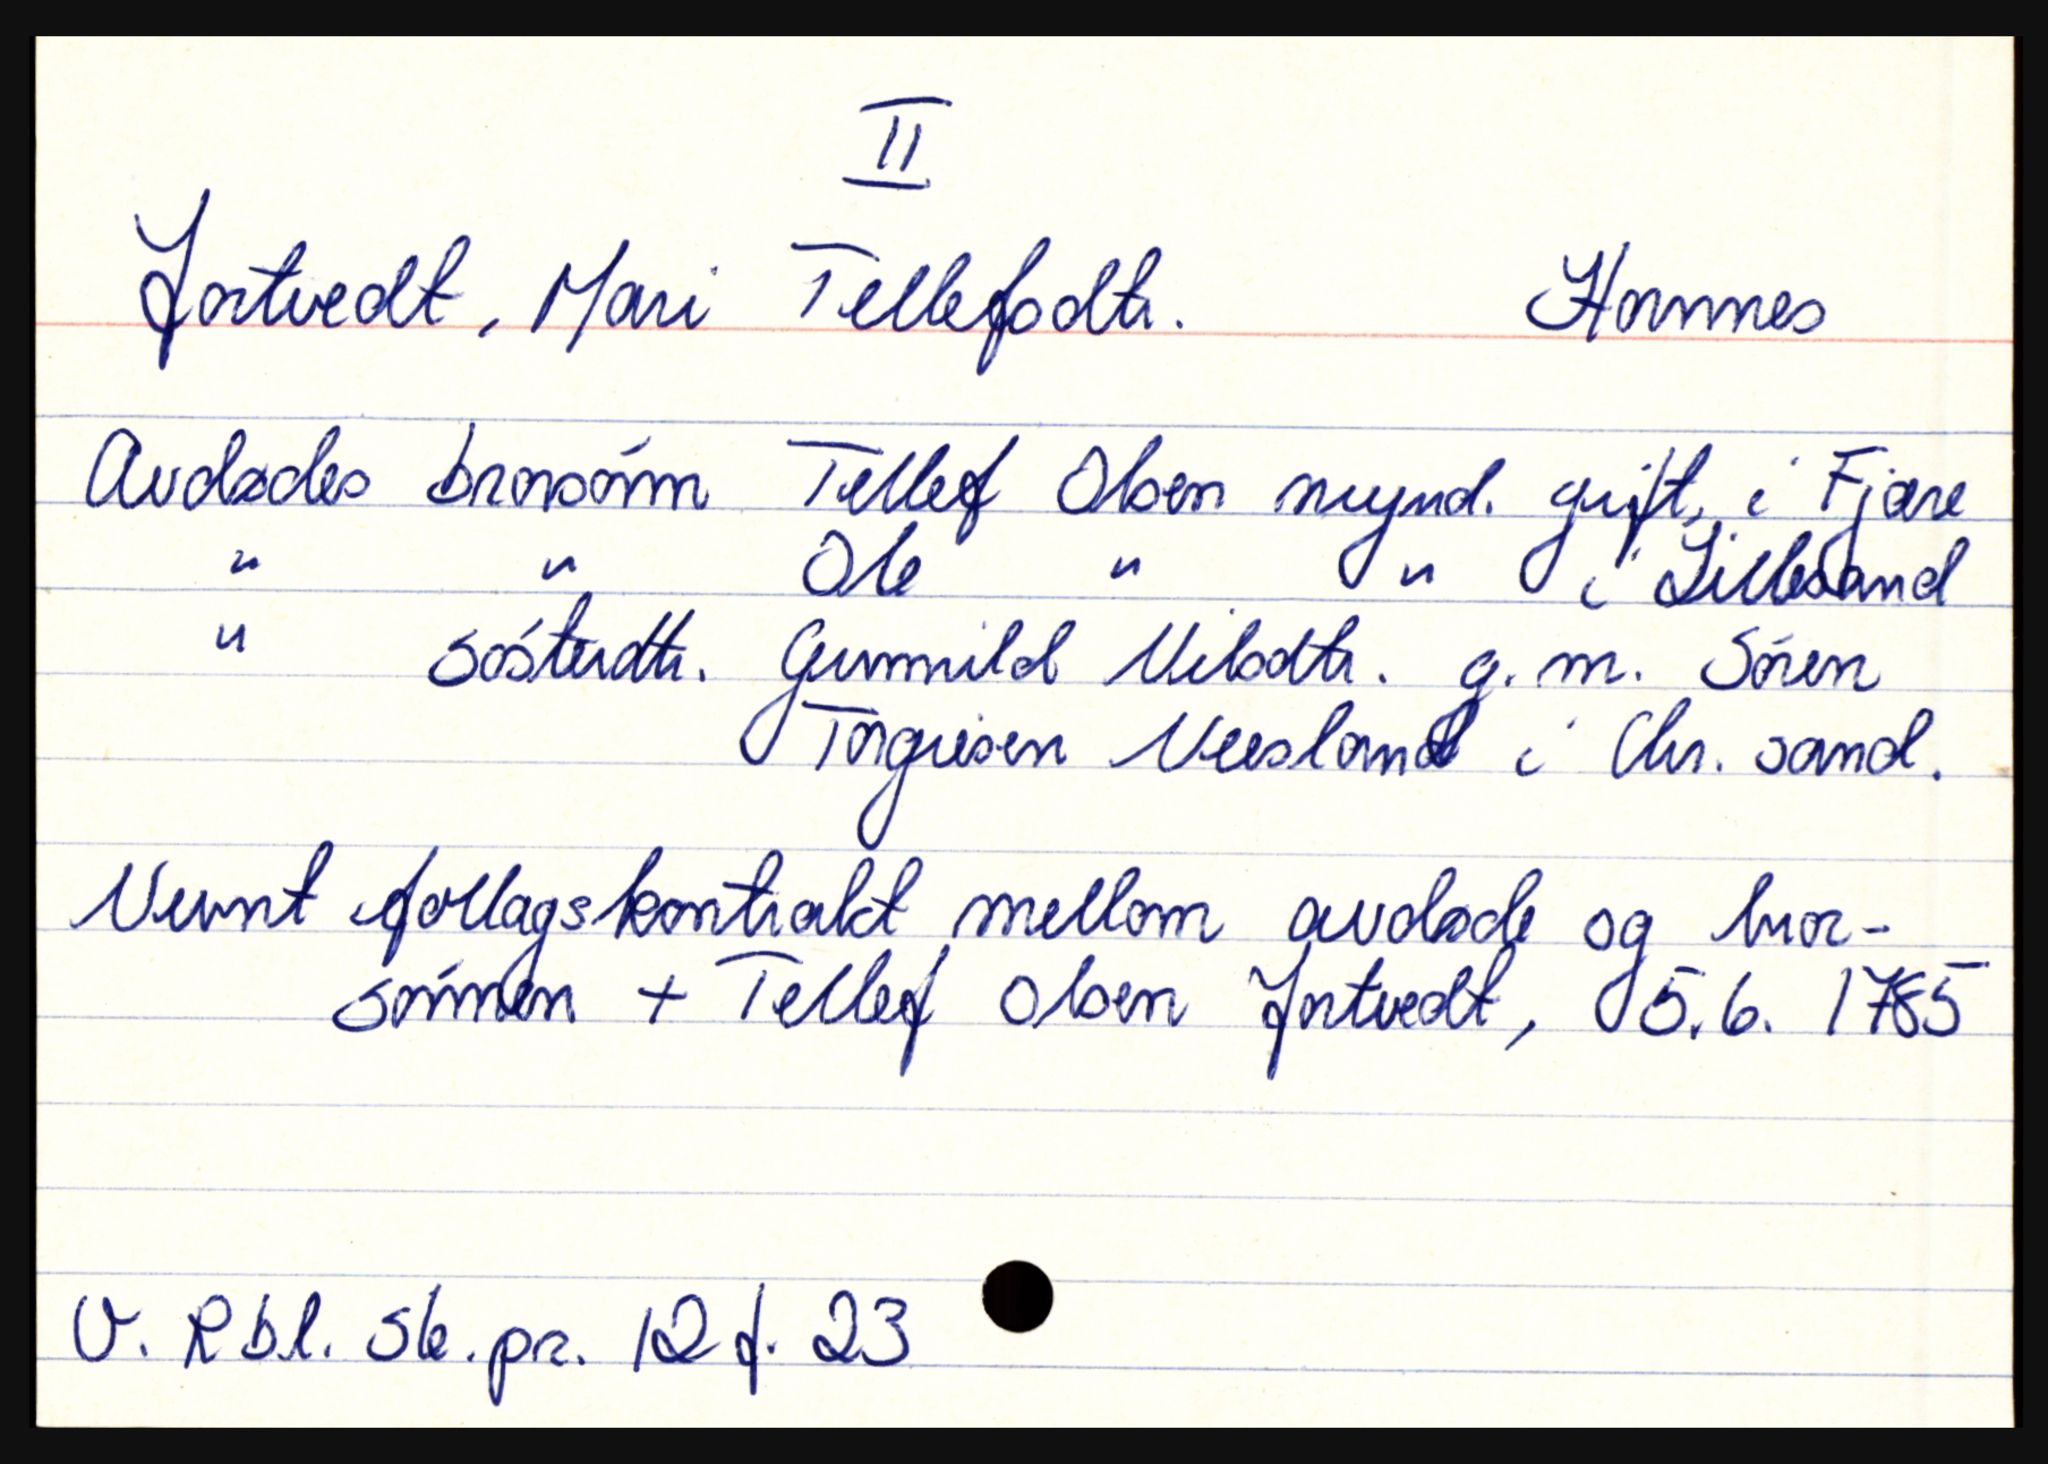 II
Jortvedt, Mari Tellefsdtr. Hornnes
Avdødes brorsönn Tellef Olsen mynd. gift, i Fjære
" " Ole " " i Lillesand
" sösterdtr. Gunnild Nilsdtr. g. m. Sören
Torgrisen Neesland i Chr. sand.
Nevnt follagskontrakt mellom avdøde og bror-
sönnen + Tellef Olsen Jortvedt, 5.6. 1785
V. Rbl. sk. pr. 12 f. 23